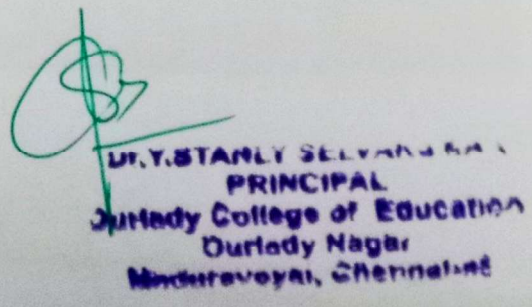 Dr.Y.STANLY
PRINCIPAL
Ourlady College of Education
Ourlady Nagar
Maduravoyal, Chennai